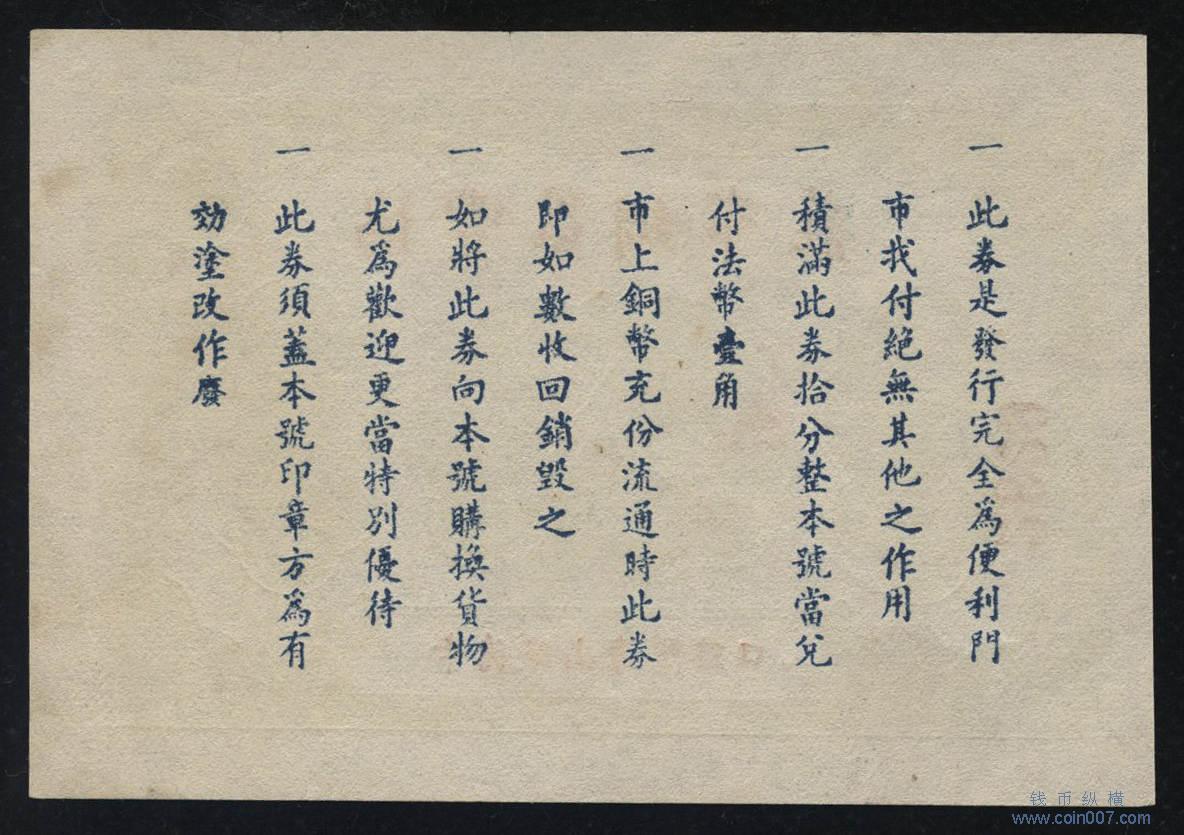 一 此券是發行完全爲便利門
市找付絕無其他之作用
一 積滿此券拾分整本號當兌
付法幣壹角
一 市上銅幣充份流通時此券
即如數收回銷毀之
一 如將此券向本號購換貨物
尤爲歡迎更當特別優待
一 此券須蓋本號印章方爲有
効塗改作廢
钱币纵横
www.coin007.com